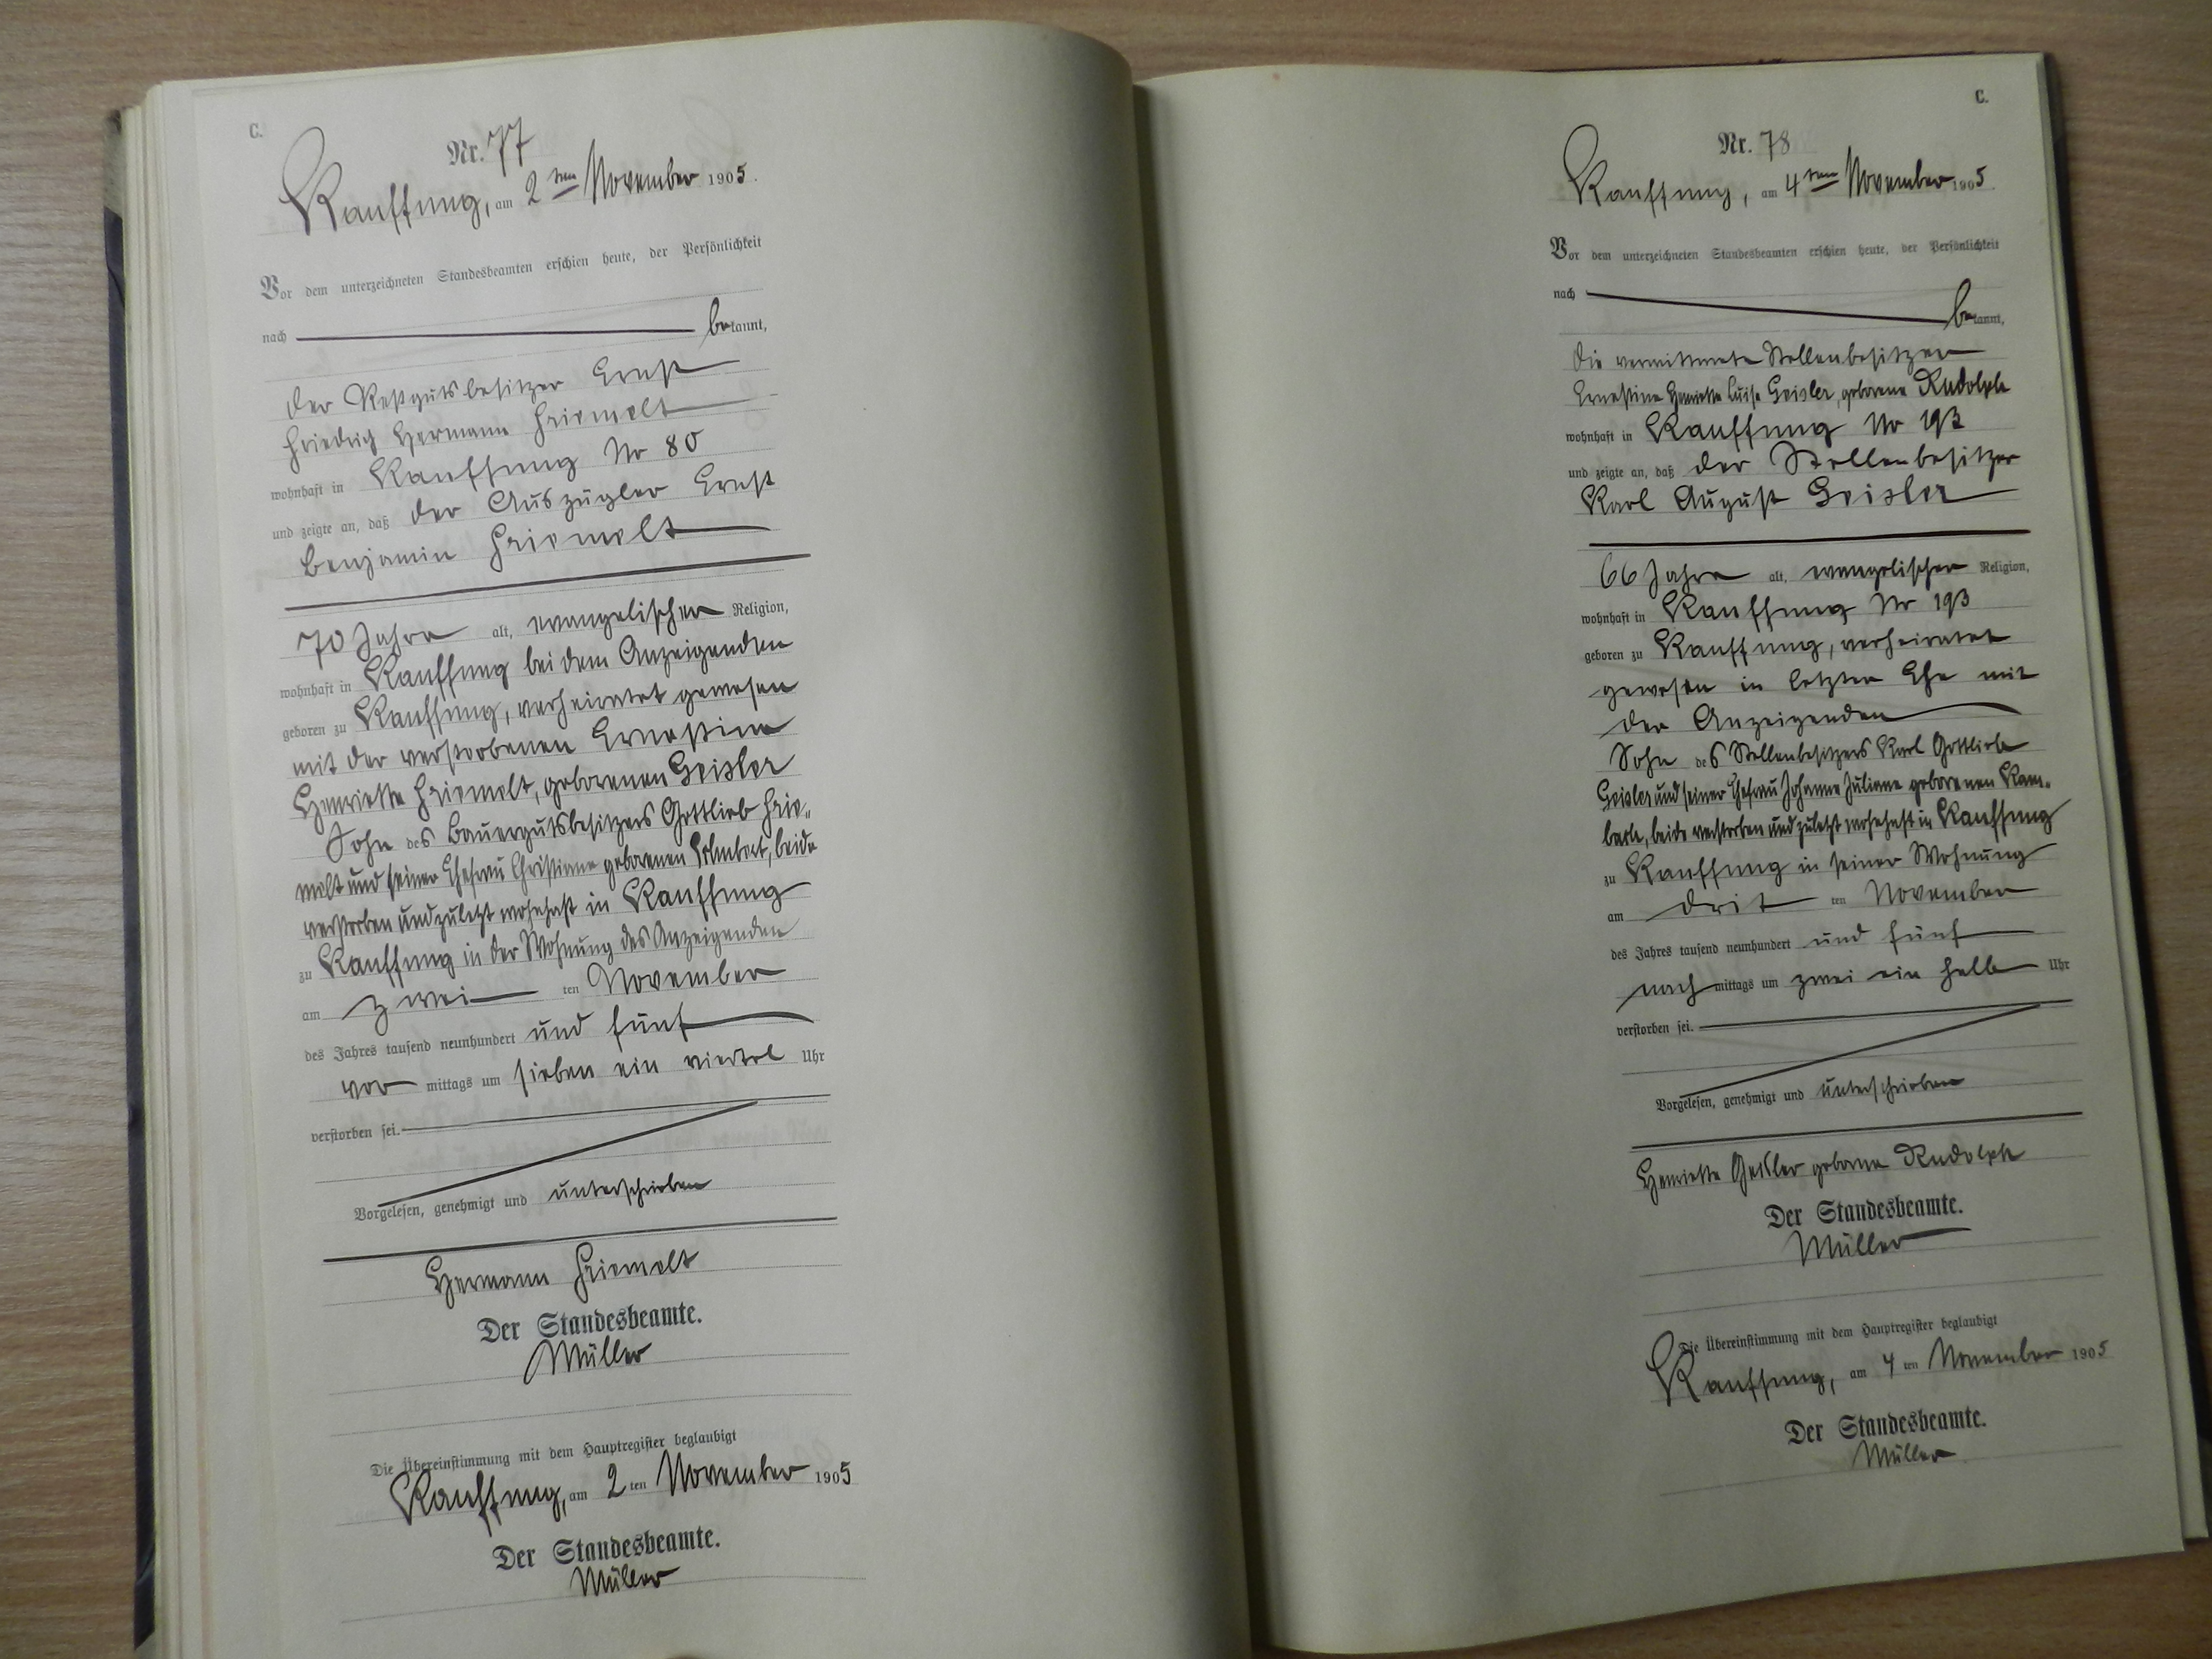 C.
Nr. 77
Kauffung, am 2ten November 1905.
Vor dem unterzeichneten Standesbeamten erschien heute, der Persönlichkeit
nach be kannt,
der Restgutsbesitzer Ernst
Friedrich Hermann Friemelt
wohnhaft in Kauffung No 80
und zeigte an, daß der Auszügler Ernst
Benjamin Friemelt
70 Jahre alt, evangelischer Religion,
wohnhaft in Kauffung bei dem Anzeigenden
geboren zu Kauffung, verheiratet gewesen
mit der verstorbenen Ernestine
Henriette Friemelt, geborenen Geisler
Sohn des Bauergutsbesitzers Gottlieb Frie-
melt und seiner Ehefrau Christiane geborenen, beide
verstorben und zuletzt wohnhaft in Kauffung
zu Kauffung in der Wohnung des Anzeigenden
am zwei ten November
des Jahres tausend neunhundert und fünf
vor mittags um sieben ein viertel Uhr
verstorben sei.
Vorgelesen, genehmigt und unterschrieben
Hermann Friemelt
Der Standesbeamte.
Müller
Die Übereinstimmung mit dem Hauptregister beglaubigt
Kauffung, am 2 ten November 1905
Der Standesbeamte.
Müller
C.
Nr. 78
Kauffung, am 4ten November 1905.
Vor dem unterzeichneten Standesbeamten erschien heute, der Persönlichkeit
nach be kannt,
die verwittwete Stellenbesitzer
Ernestine Henriette Luise Geisler, geborene Rudolph
wohnhaft in Kauffung No 193
und zeigte an, daß der Stellenbesitzer
Karl August Geisler
66 Jahre alt, evangelischer Religion,
wohnhaft in Kauffung No 193
geboren zu Kauffung, verheiratet
gewesen in letzter Ehe mit
der Anzeigenden
Sohn des Stellenbesitzers Karl Gottlieb
Geisler und seiner Ehefrau Johanne Juliane geborenen
beide verstorben und zuletzt wohnhaft in Kauffung
zu Kauffung in seiner Wohnung
am drit ten November
des Jahres tausend neunhundert und fünf
nach mittags um zwei ein halb Uhr
verstorben sei.
Vorgelesen, genehmigt und unterschrieben
Henriette Geisler geborene Rudolph
Der Standesbeamte.
Müller
Die Übereinstimmung mit dem Hauptregister beglaubigt
Kauffung, am 4 ten November 1905
Der Standesbeamte.
Müller